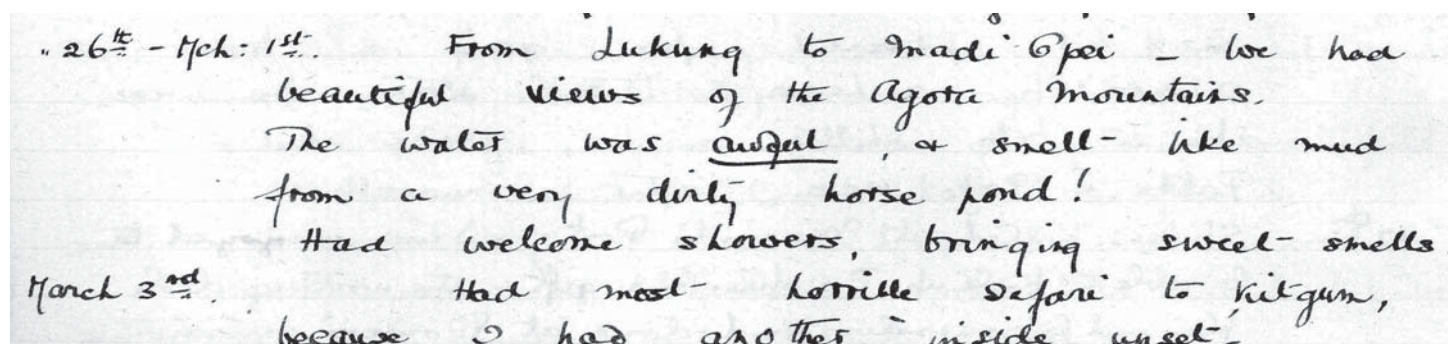 " 26th - Mch: 1st. From Lukung to Madi Opei - We had
beautiful views of the Agora Mountains.
The water was awful, & smelt like mud
from a very dirty horse pond!
Had welcome showers, bringing sweet smells
March 3rd. Had most horrible safari to Kitgum,
because I had another inside upset.